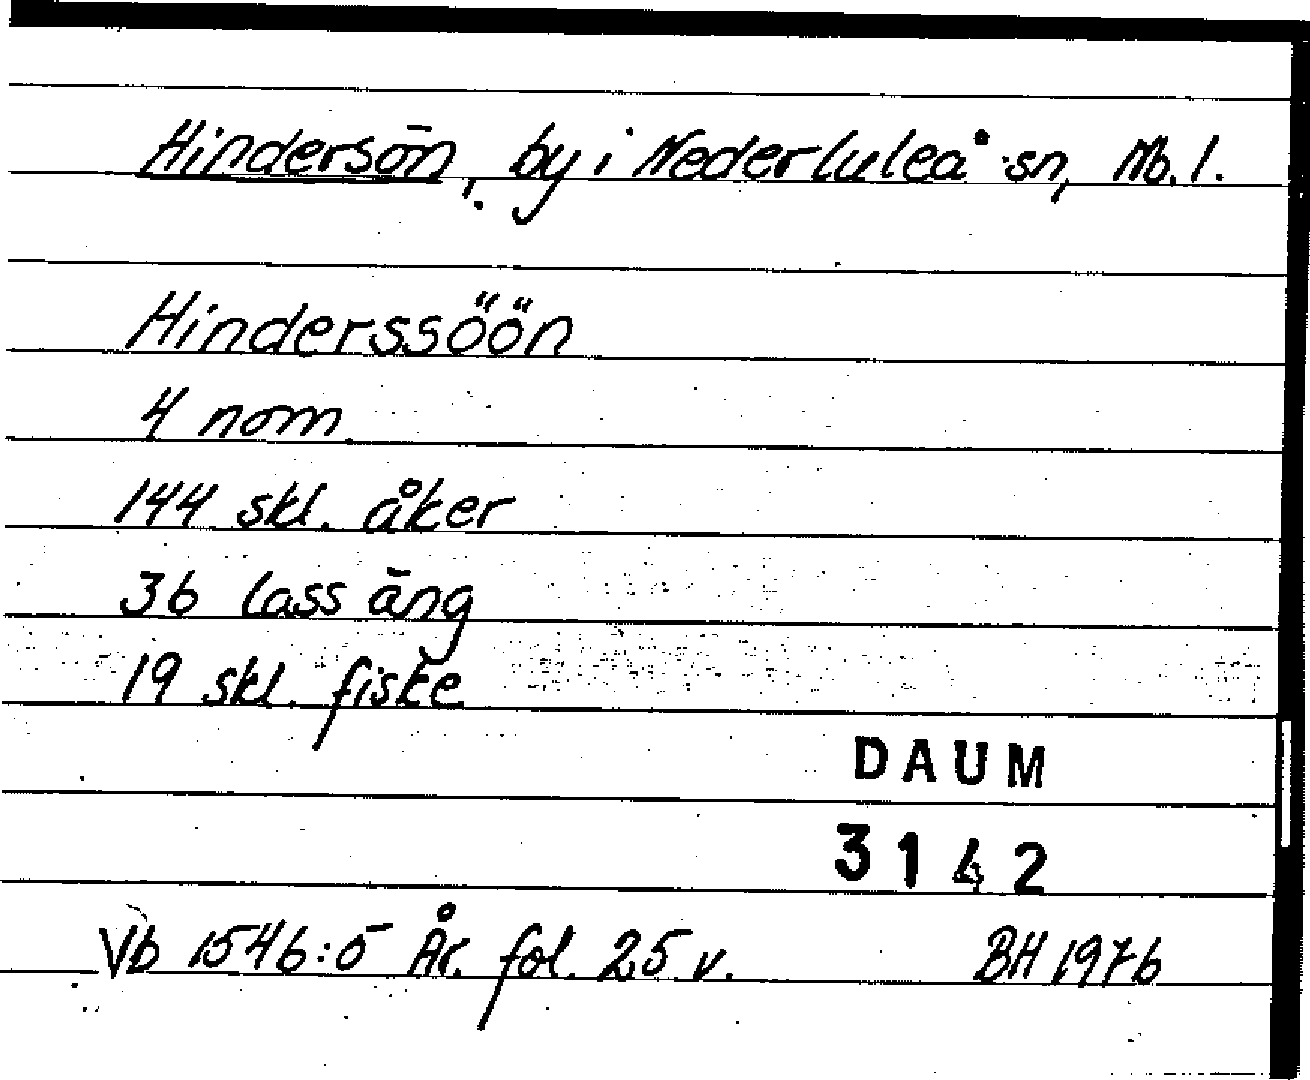 Hindersön, by i Nederluleå sn, Nb. l.
Hinderssöön
4 nom.
144 skl. åker
36 lass äng
19 skl. fiske
DAUM
3142
Vb 1546:5 År. fol. 25 v. BH 1976